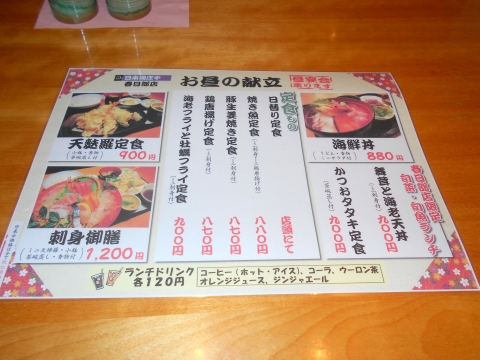 春日部店
お昼の献立
昼宴会
承ります
天麩羅定食
900円
刺身御膳
1,200円
定食もの
日替り定食
店頭にて
焼き魚定食
八八〇円
豚生姜焼き定食
八七〇円
鶏唐揚げ定食
八七〇円
海老フライと牡蠣フライ定食
九〇〇円
海鮮丼
880円
舞茸と海老天丼
九〇〇円
かつおタタキ定食
九〇〇円
春日部店限定
ランチドリンク
各120円
コーヒー(ホット・アイス)、コーラ、ウーロン茶
オレンジジュース、ジンジャエール